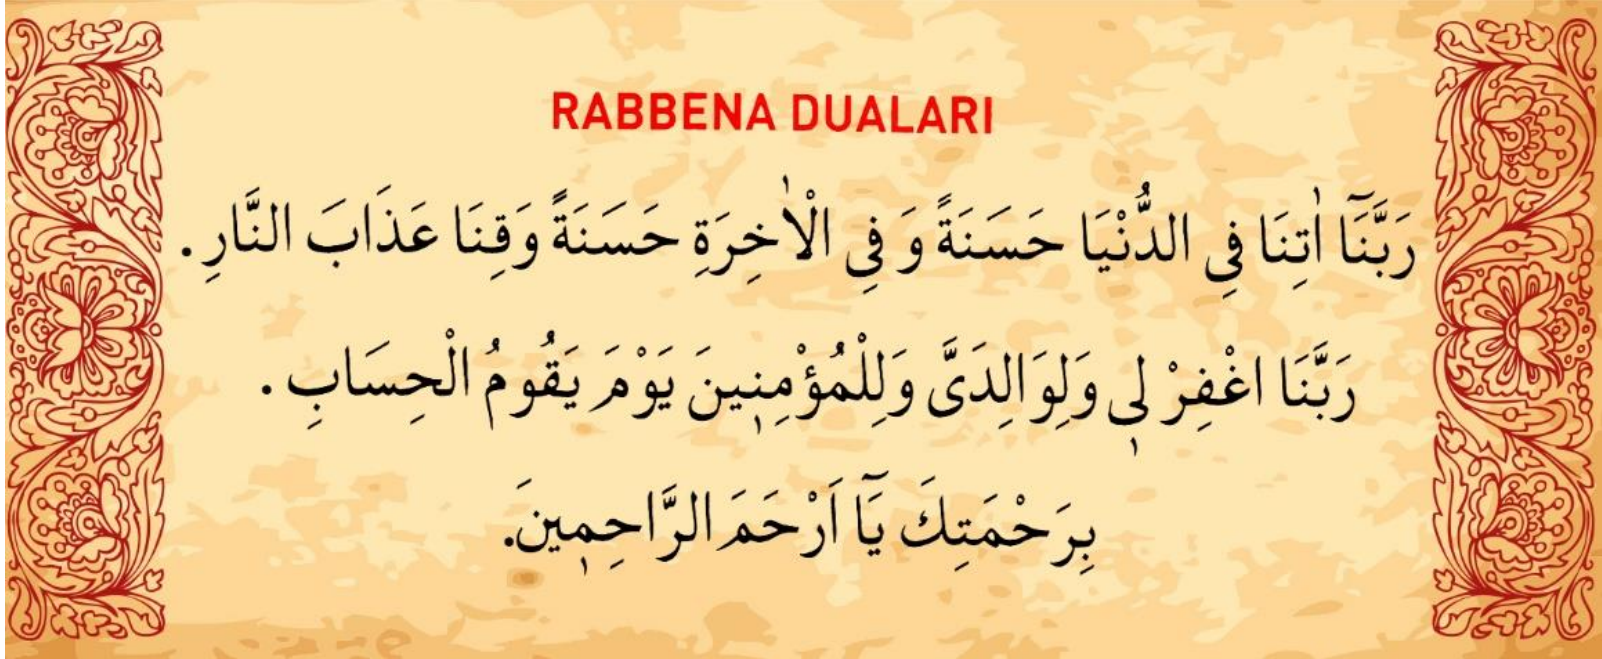 RABBENA DUALARI
رَبَّنَٓا اٰتِنَا فِي الدُّنْيَا حَسَنَةً وَ فِي الْاٰخِرَةِ حَسَنَةً وَقِنَا عَذَابَ النَّارِ .
رَبَّنَا اغْفِرْ لٖى وَلِوَالِدَىَّ وَلِلْمُؤْمِنٖينَ يَوْمَ يَقُومُ الْحِسَابِ .
بِرَحْمَتِكَ يَٓا اَرْحَمَ الرَّاحِمٖينَ.